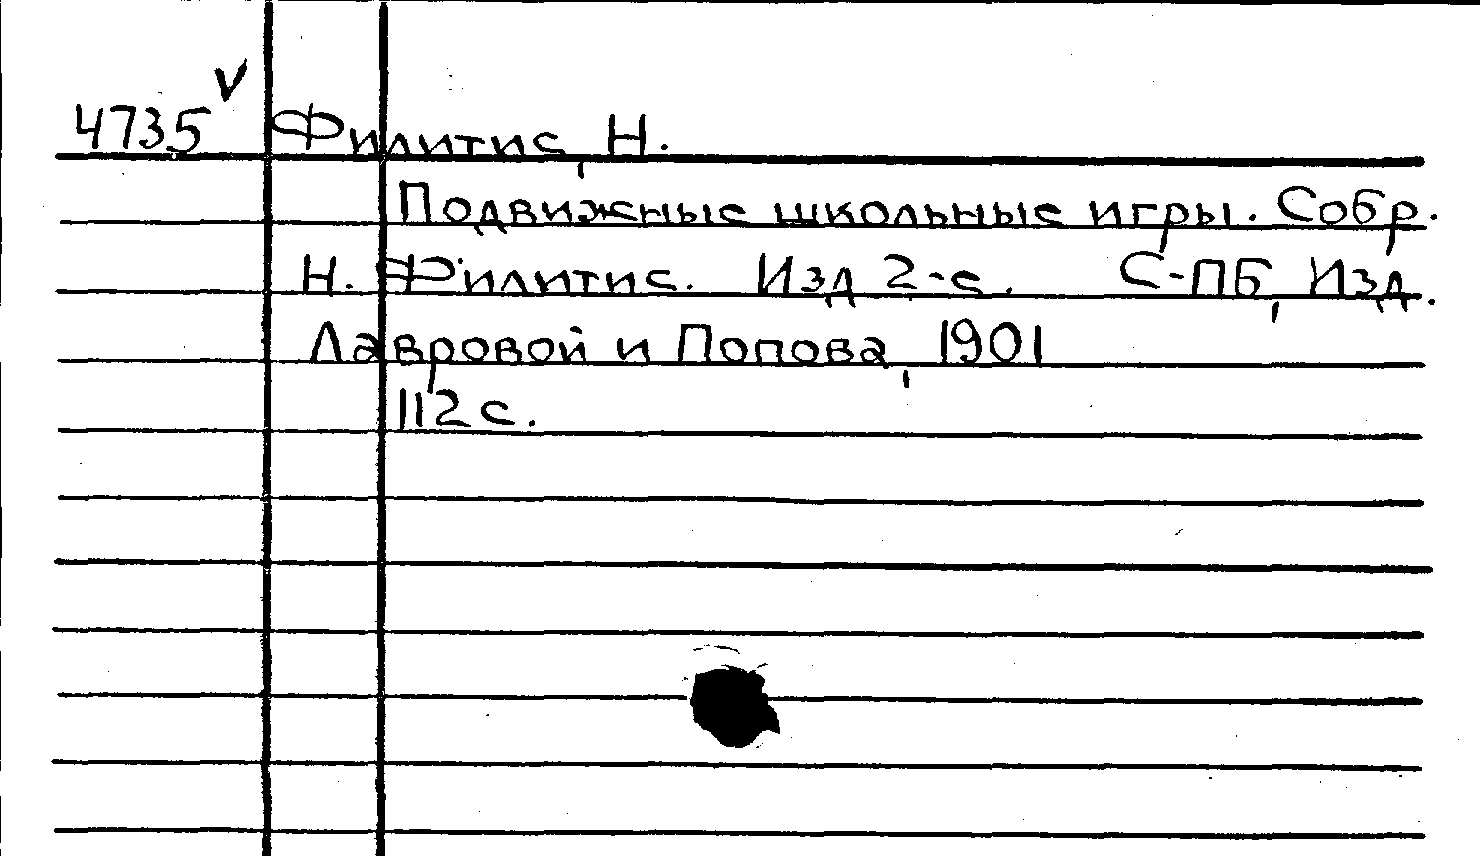 4735 V Филитис, Н.
Подвижные школьные игры. Собр.
Н. Филитис. Изд 2-е. С-ПБ, Изд.
Лавровой и Попова, 1901
112 с.